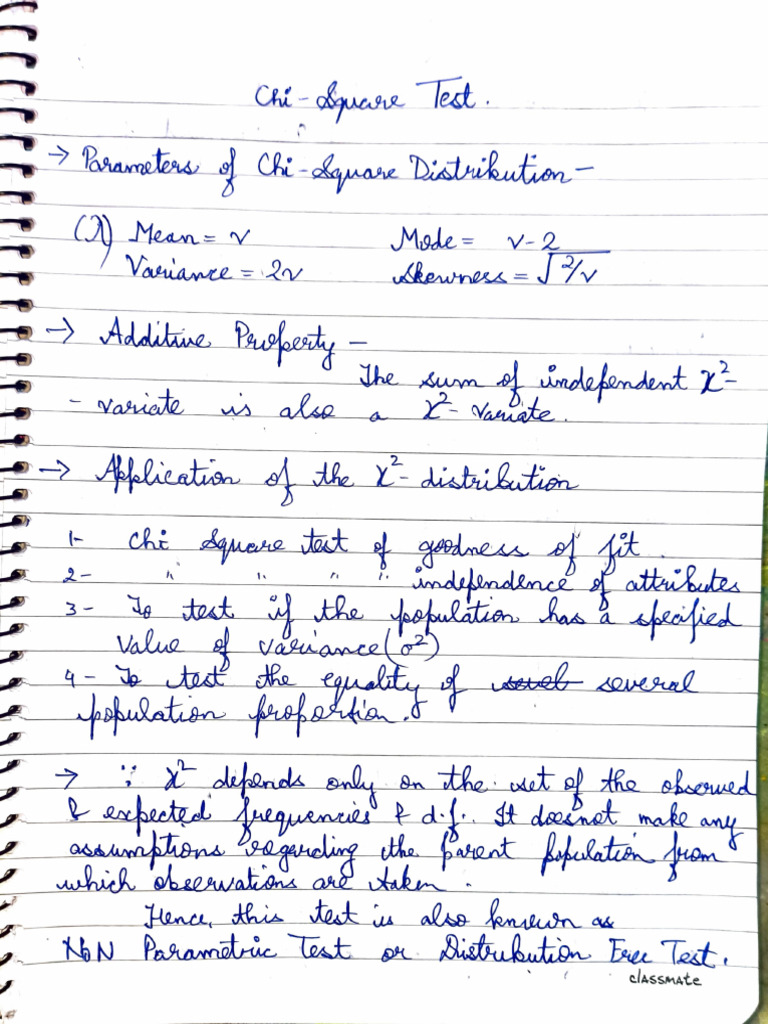 Chi-Square Test.
→ Parameters of Chi-Square Distribution -
(λ) Mean = ν Mode = ν-2
Variance = 2ν Skewness = √2/ν
→ Additive Property -
The sum of independent χ²-
- variate is also a χ²-variate.
→ Application of the χ²-distribution
1- Chi Square test of goodness of fit.
2- " " " " independence of attributes
3- To test if the population has a specified
value of variance (σ²)
4- To test the equality of several
population proportion.
→ ∵ χ² depends only on the set of the observed
& expected frequencies & d.f.. It doesnot make any
assumptions regarding the parent population from
which observations are taken.
Hence, this test is also known as
NON Parametric Test or Distribution Free Test.
classmate